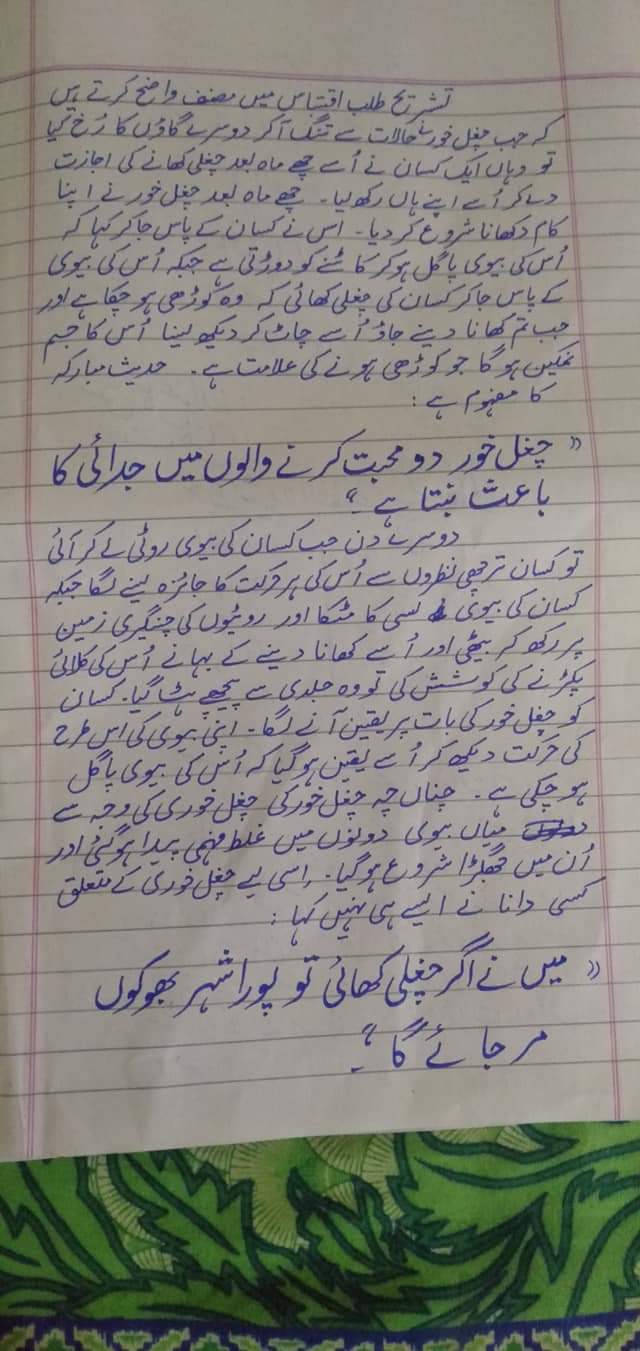 تشریح طلب اقتباس میں مصنف واضح کرتے ہیں
کہ جب چغل خور نے حالات سے تنگ آ کر دوسرے گاؤں کا رُخ کیا
تو وہاں ایک کسان نے اُسے چھے ماہ بعد چغلی کھانے کی اجازت
دے کر اُسے اپنے ہاں رکھ لیا۔ چھے ماہ بعد چغل خور نے اپنا
کام دکھانا شروع کر دیا۔ اس نے کسان کے پاس جا کر کہا کہ
اُس کی بیوی پاگل ہو کر کاٹنے کو دوڑتی ہے جبکہ اُس کی بیوی
کے پاس جا کر کسان کی چغلی کھائی کہ وہ کوڑھی ہو چکا ہے اور
جب تم کھانا دینے جاؤ اُسے چاٹ کر دیکھ لینا اُس کا جسم
نمکین ہو گا جو کوڑھی ہونے کی علامت ہے۔ حدیث مبارکہ
کا مفہوم ہے:
"چغل خور دو محبت کرنے والوں میں جدائی کا
باعث بنتا ہے۔"
دوسرے دن جب کسان کی بیوی روٹی لے کر آئی
تو کسان ترچھی نظروں سے اُس کی ہر حرکت کا جائزہ لینے لگا جبکہ
کسان کی بیوی لسی کا مٹکا اور روٹیوں کی چنگیری زمین
پر رکھ کر بیٹھی اور اُسے کھانا دینے کے بہانے اُس کی کلائی
پکڑنے کی کوشش کی تو وہ جلدی سے پیچھے ہٹا گیا۔ کسان
کو چغل خور کی بات پر یقین آنے لگا۔ اپنی بیوی کی اس طرح
کی حرکت دیکھ کر اُسے یقین ہو گیا کہ اُس کی بیوی پاگل
ہو چکی ہے۔ چناں چہ چغل خور کی چغل خوری کی وجہ سے
میاں بیوی دونوں میں غلط فہمی پیدا ہو گئی اور
اُن میں جھگڑا شروع ہو گیا۔ اسی لیے چغل خوری کے متعلق
کسی دانا نے ایسے ہی نہیں کہا:
"میں نے اگر چغلی کھائی تو پورا شہر بھوکوں
مر جائے گا۔"